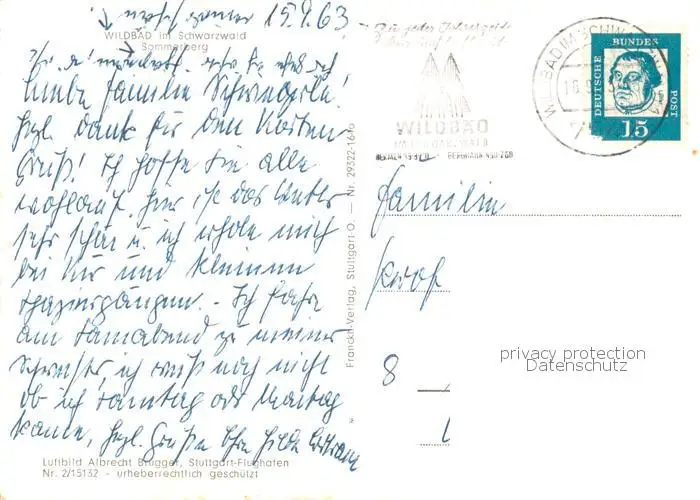 15.9.63
WILDBAD im Schwarzwald
Sommerberg
Liebe Familie
Hzl. Dank für den Karten
Gruß! Ich hoffe Sie alle
wohlauf. Hier ist das Wetter
sehr schön u. ich erhole mich
bei Kur und kleinen
Spaziergängen. - Ich fahre
am Sonnabend zu meiner
Schwester, ich weiß noch nicht
ob ich Sonntag oder Montag
komme, Hzl. Grüße Ihre Hilde
Luftbild Albrecht Brugger, Stuttgart-Flughafen
Nr. 2/15132 - urheberrechtlich geschützt
Franckh-Verlag, Stuttgart-O. — Nr. 29322-1640
WILDBAD
IM SCHWARZWALD
WILDBAD IM SCHW
DEUTSCHE
BUNDES
POST
15
Familie
8
privacy protection
Datenschutz